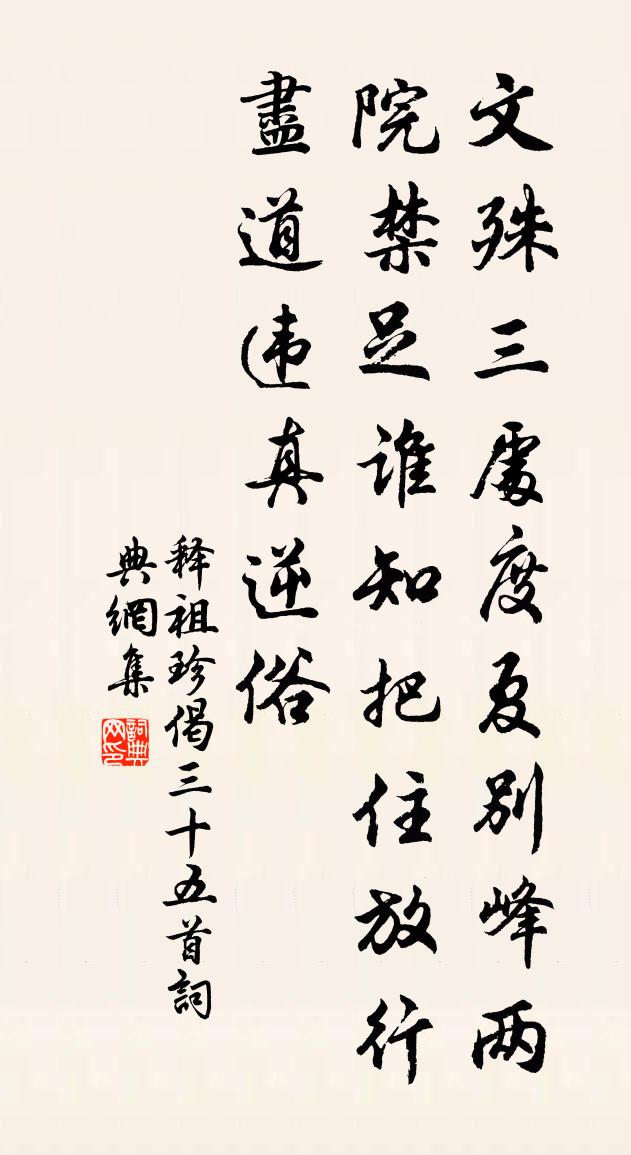 文殊三處度夏別峰两
院禁足谁知把住放行
盡道违真逆俗
释祖珍偈三十五首詞
典網集
詞典
网印